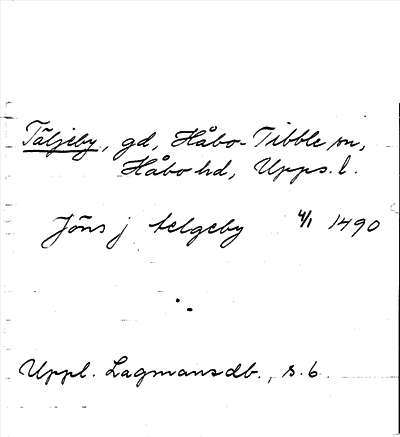 Täljeby, gd, Håbo-Tibble sn,
Håbo hd, Upps. l.
Jöns j telgeby 4/1 1490
Uppl. Lagmansdb., s. 6.